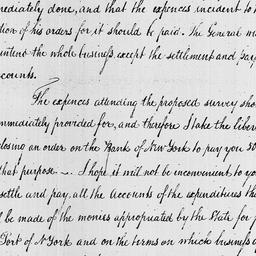 mediately done, and that the expences incident to
tion of his orders for it should be paid. The General
intend the whole business, except the settlement and pay
counts.
The expences attending the proposed survey sho
immediately provided for, and therefore I take the liber
closing an order on the Bank of New York to pay you
that purpose — . I hope it will not be inconvenient to yo
settle and pay, all the accounts of the expenditures th
l be made of the monies appropriated by the State for
Port of N York and on the terms on which business